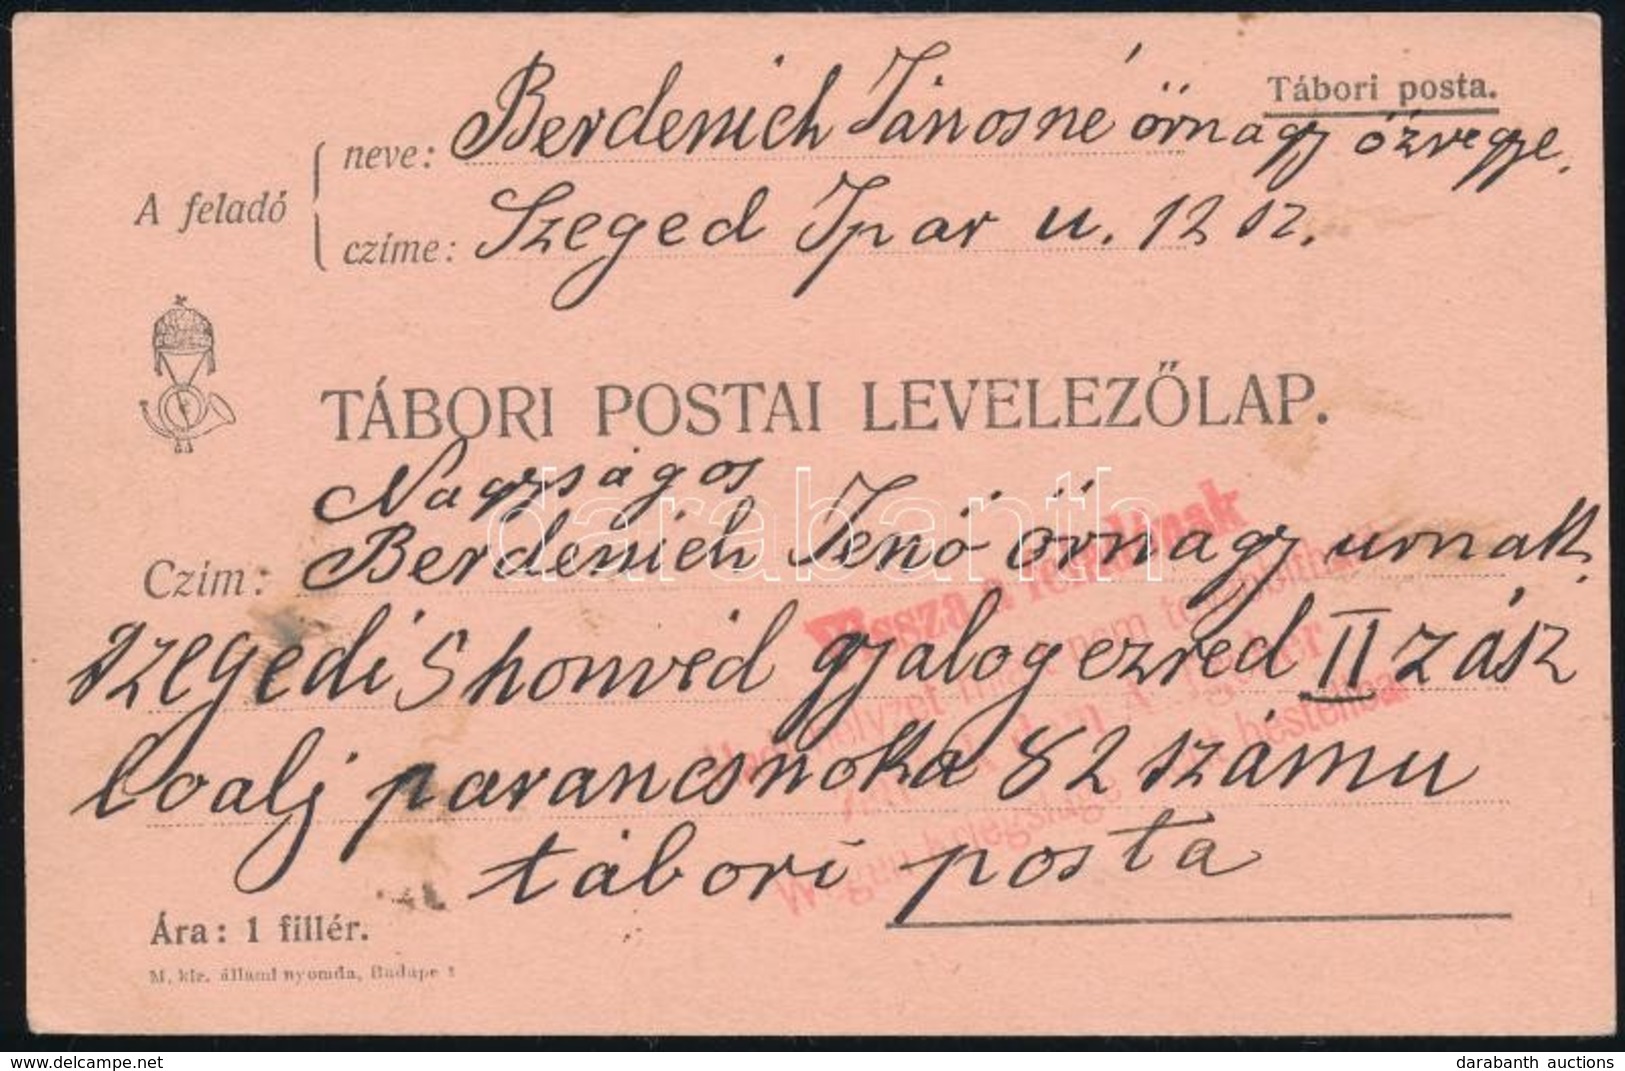 Tábori posta.
A feladó
neve: Berdenich Jánosné őrnagy özvegye.
czíme: Szeged Ipar u. 12 sz.
TÁBORI POSTAI LEVELEZŐLAP.
Nagyságos
Czím: Berdenich Jenő őrnagy urnak
szegedi 5 honvéd gyalogezred II zász
loalj parancsnoka 82 számu
tábori posta
Vissza a feladónak
nem
bestellbar
Ára: 1 fillér.
M. kir. állami nyomda, Budapest
darabanth
darabanth auctions
delcampe.net